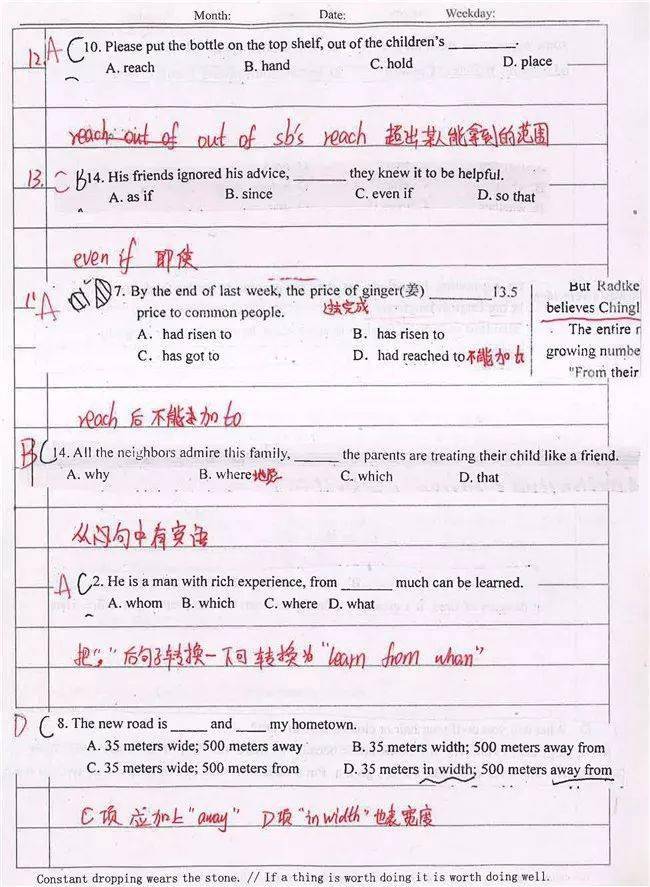 Month: Date: Weekday:
12. A C 10. Please put the bottle on the top shelf, out of the children's ________.
A. reach B. hand C. hold D. place
reach out of out of sb's reach 超出某人能拿到的范围
13. C B 14. His friends ignored his advice, ______ they knew it to be helpful.
A. as if B. since C. even if D. so that
even if 即使
A 7. By the end of last week, the price of ginger(姜) ______13.5
过去完成
price to common people.
A. had risen to B. has risen to
C. has got to D. had reached to 不能加 to
But Radtke
believes Chingl
The entire r
growing numbe
"From their
reach 后不能加 to
B C 14. All the neighbors admire this family, ______ the parents are treating their child like a friend.
A. why B. where 地点 C. which D. that
从问句中有宾语
A C 2. He is a man with rich experience, from ______ much can be learned.
A. whom B. which C. where D. what
把"," 后句子转换一下可转换为"learn from whom"
D C 8. The new road is _____ and ____ my hometown.
A. 35 meters wide; 500 meters away B. 35 meters width; 500 meters away from
C. 35 meters wide; 500 meters from D. 35 meters in width; 500 meters away from
C 项 应加上"away" D项"in width"也表宽度
Constant dropping wears the stone. // If a thing is worth doing it is worth doing well.